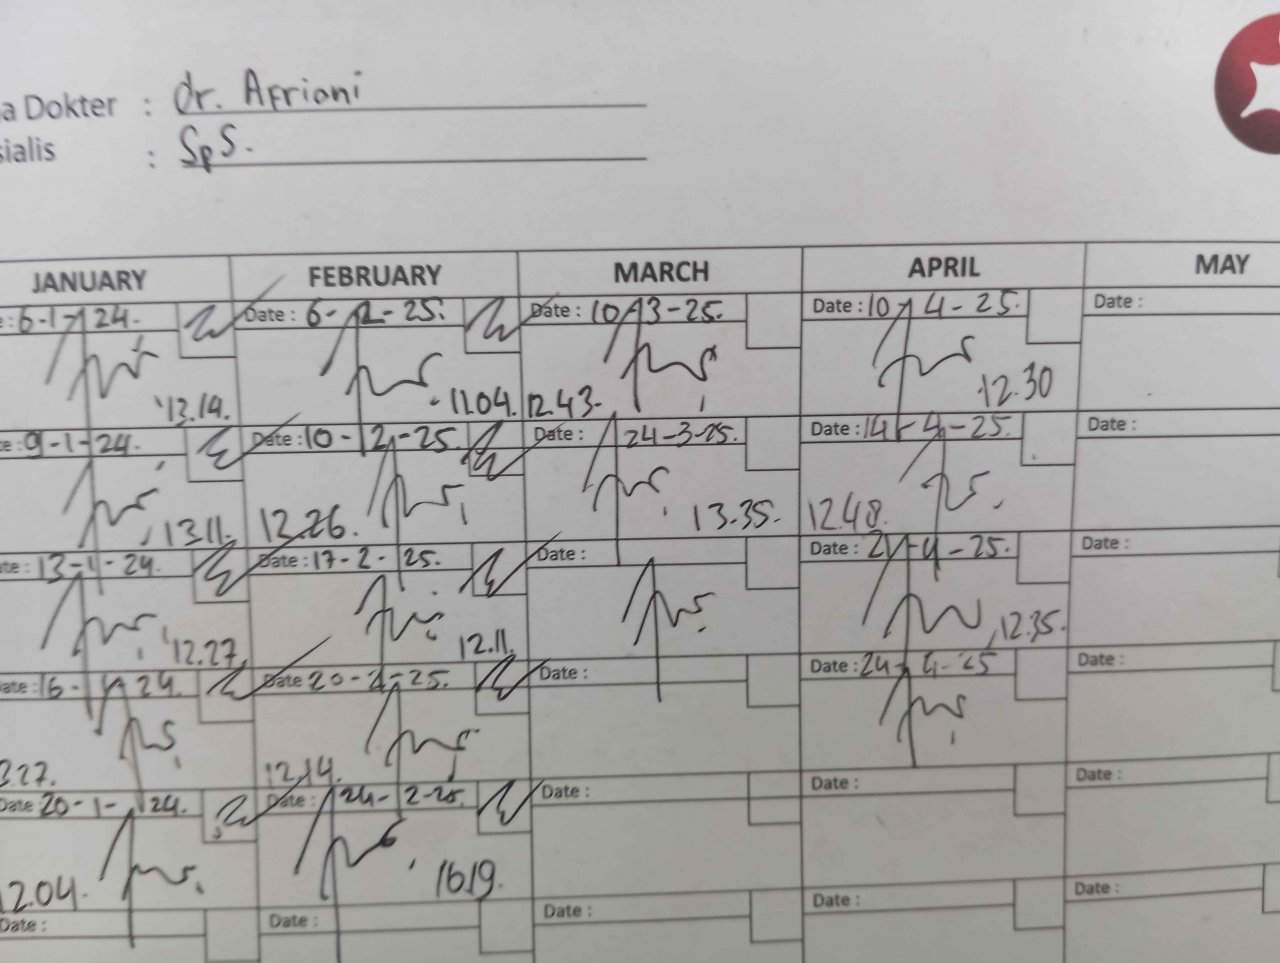 a Dokter : dr. Afriani
sialis : SpS.
JANUARY FEBRUARY MARCH APRIL MAY
e: 6-1-24. Date: 6-2-25. Date: 10-3-25. Date: 10-4-25. Date:
13.14. 11.04. 12.43. 12.30
te: 9-1-24. Date: 10-2-25. Date: 24-3-25. Date: 14-4-25. Date:
13.11. 12.26. 13.35. 12.48.
te: 13-1-24. Date: 17-2-25. Date: Date: 21-4-25. Date:
12.27. 12.11. 12.35.
ate: 16-1-24. Date 20-2-25. Date: Date: 24-4-25 Date:
3.27. 12.14.
Date 20-1-24. Date: 24-2-25. Date: Date: Date:
12.04. 16.19.
Date: Date: Date: Date: Date: